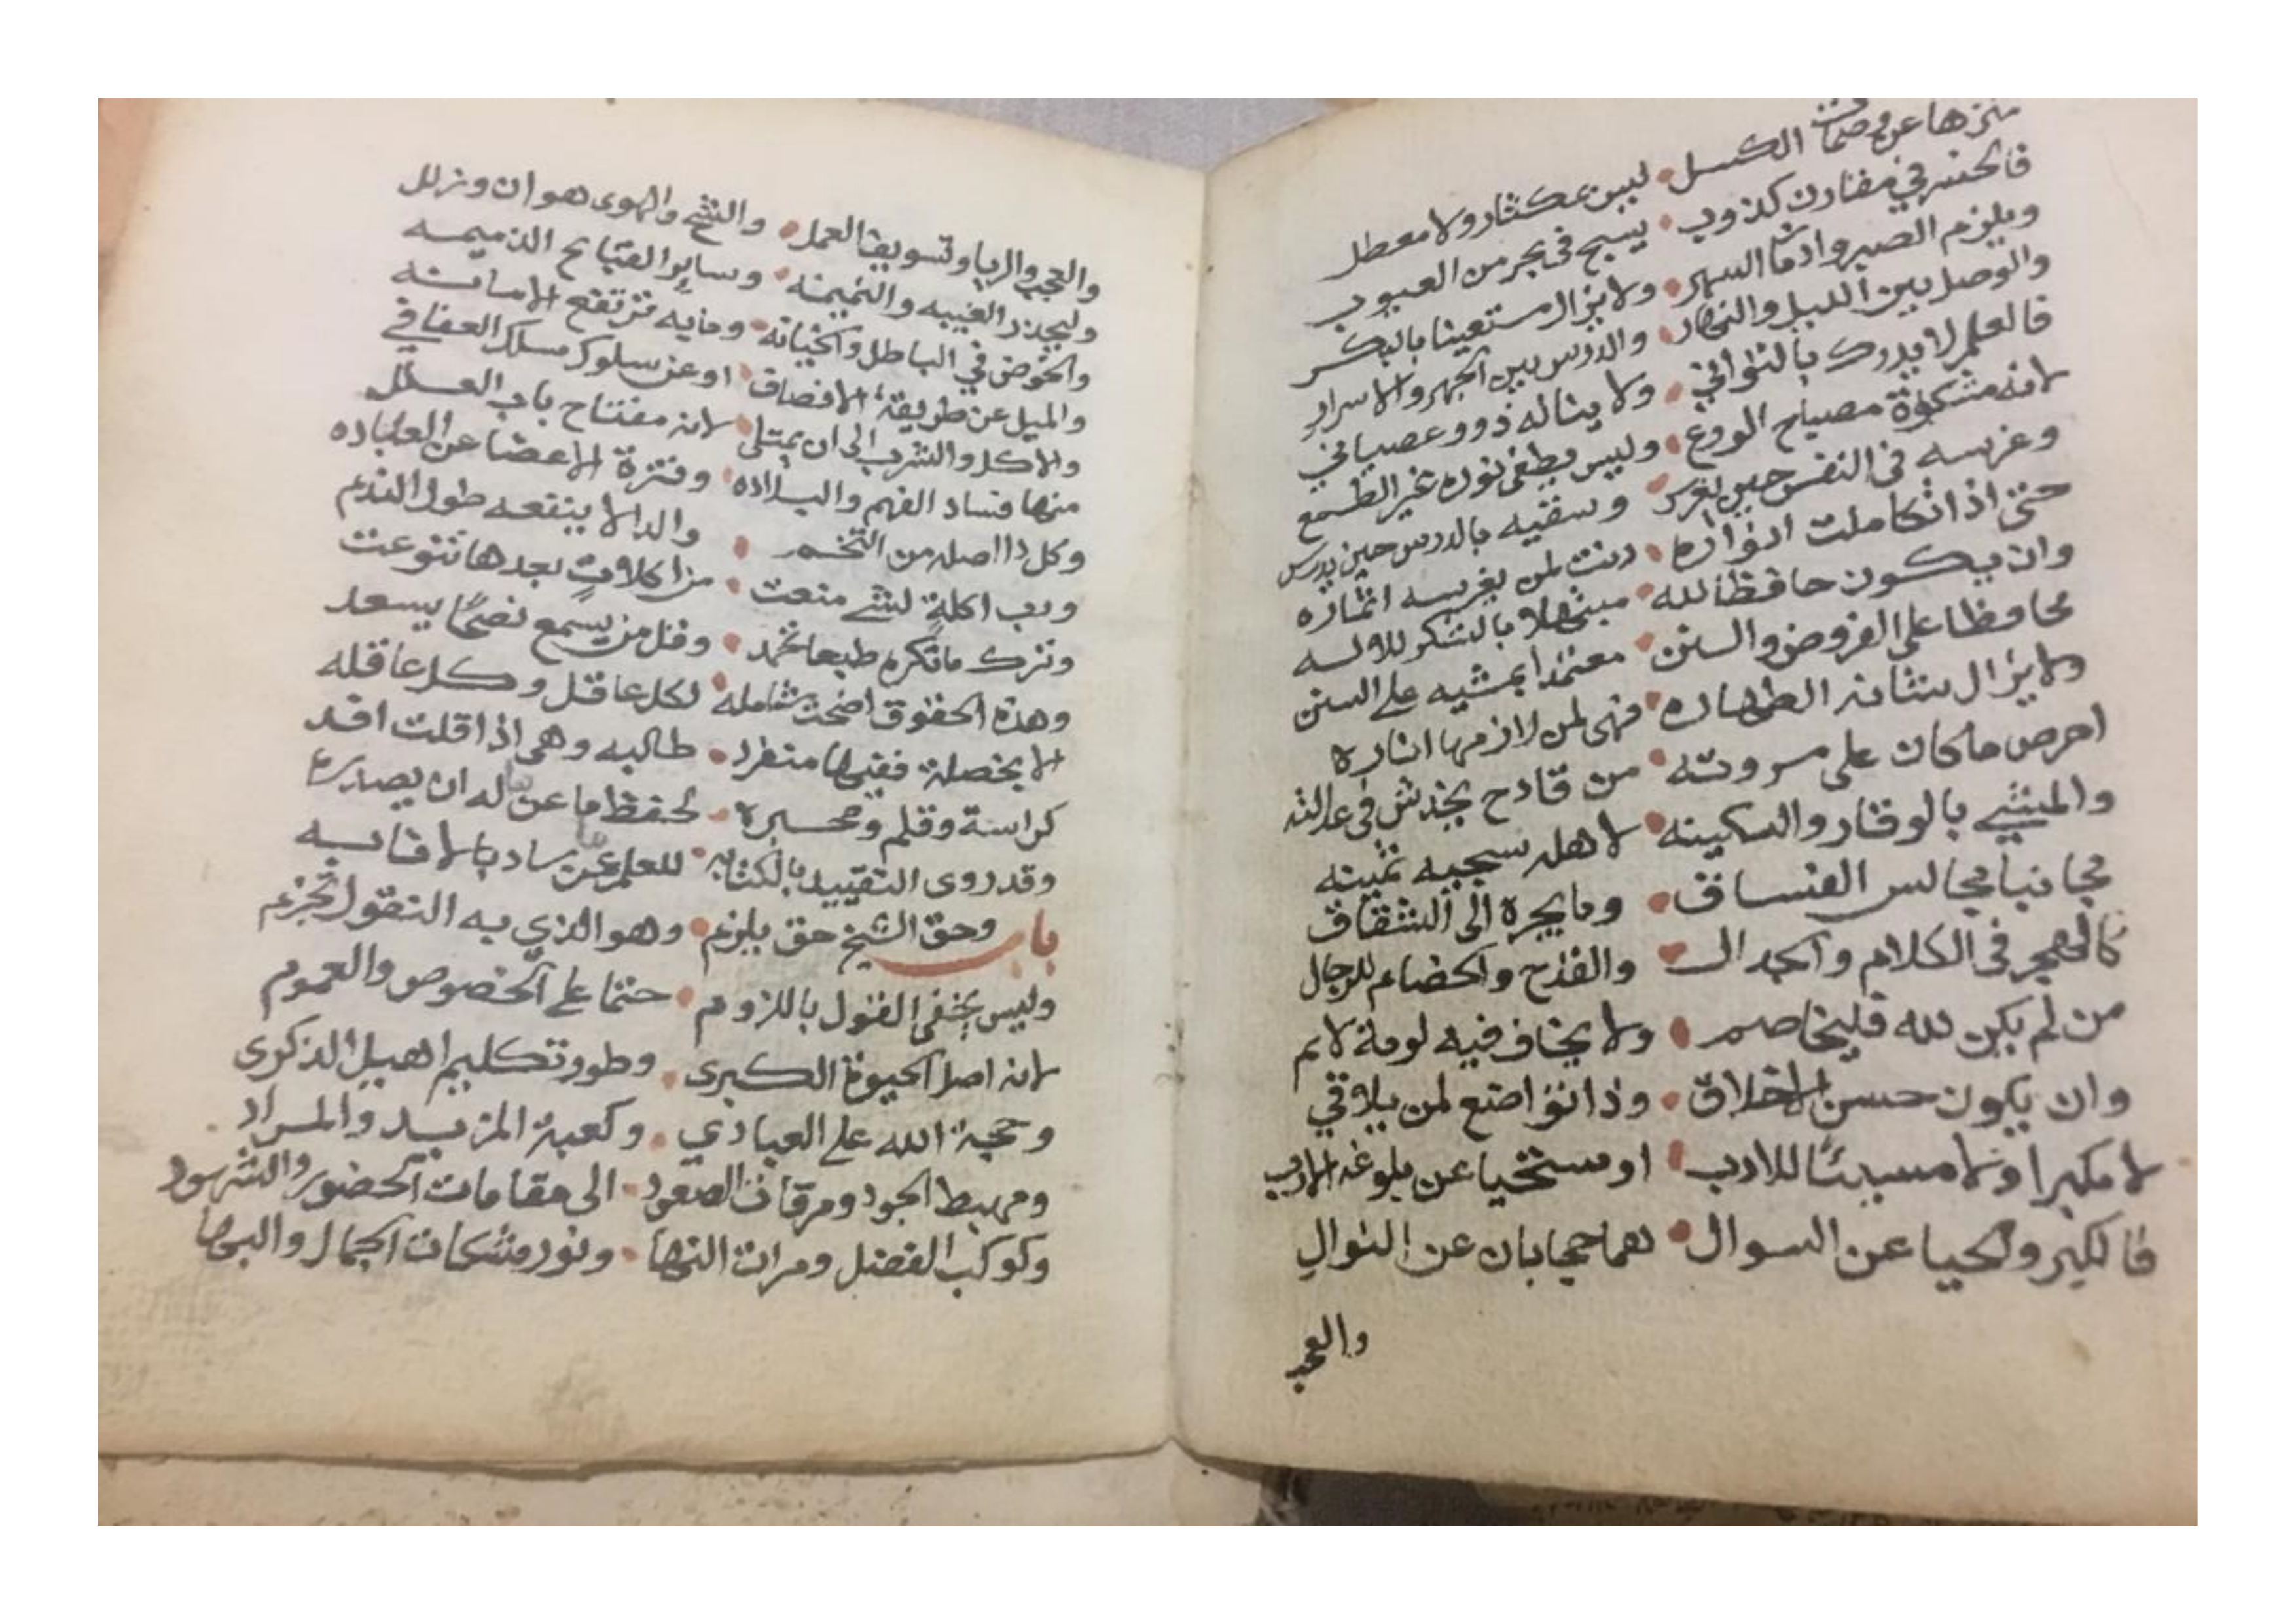 منزها عن وصمات الكسل • ليس بمكثار ولا معطل
فالخسر في مقارن كذوب • يسبح في بحر من العيوب
ويلزم الصبر وادمان السهر • ولا يزال مستعينا بالبكر
والوصل بين الليل والنهار • والدرس بين الجهر والاسرار
فالعلم لا يدرك بالتواني • ولا يناله ذوو عصياني
لانه مشكوة مصباح الورع • وليس يطفى نوره غير الطمع
وغرسه في النفس حين يغرس • وسقيه بالدرس حين يدرس
حتى اذا تكاملت انواره • دنت لمن يغرسه اثماره
وان يكون حافظا لله • مبتهلا بالشكر للاله
محافظا على الفروض والسنن • معتمدا بمشيه على السنن
ولا يزال شانه الطهاره • فهي لمن لازمها اناره
احرص ما كان على مروته • من قادح يخدش في عدالته
والمشي بالوقار والسكينه • لاهله سجيه ثمينه
مجانبا مجالس الفساق • وما يجره الى الشقاق
كالهجر في الكلام والجدال • والقدح والخصام للرجال
من لم يكن لله فليخاصم • ولا يخاف فيه لومة لايم
وان يكون حسن الاخلاق • وذا تواضع لمن يلاقي
لا مكبرا ولا مسيئا للادب • او مستحيا عن بلوغه الارب
فالكبر والحيا عن السوال • هما حجابان عن النوال
والعجب
والعجب والريا وتسويف العمل • والشح والهوى هوان وزلل
وليحذر الغيبه والنميمه • وساير القبايح الذميمه
والخوض في الباطل والخيانه • وما به ترتفع الامانه
والميل عن طريقة الانصاف • او عن سلوك مسلك العفافي
والاكل والشرب الى ان يمتلي • لانه مفتاح باب العلل
منها فساد الفهم والبلاده • وفترة الاعضا عن العباده
وكل داا اصله من التخم • والدا لا ينفعه طول الندم
ورب اكلة لشي منعت • من اكلات بعدها تنوعت
وترك ما تكره طبعا تحمد • وقل من يسمع نصحا يسعد
وهذه الحقوق اضحت شامله • لكل عاقل وكل عاقله
لا بخصلة ففيها منفرد • طالبه وهي اذا قلت افد
كراسة وقلم ومحبره • لحفظ ما عن له ان يصدره
وقد روى التقييد بالكتابه • للعلم عن سادٍ بالانابه
باب وحق الشيخ حق يلزم • وهو الذي به النقول تجزم
وليس يخفى القول باللزوم • حتما على الخصوص والعموم
لانه اصل الحيوة الكبرى • وطور تكليم اهيل الذكرى
وحجة الله على العبادي • وكعبة المزيد والمراد
ومهبط الجود ومرقات الصعود • الى مقامات الحضور والشهود
وكوكب الفضل ومرات النها • ونور مشكات الجمال والبها